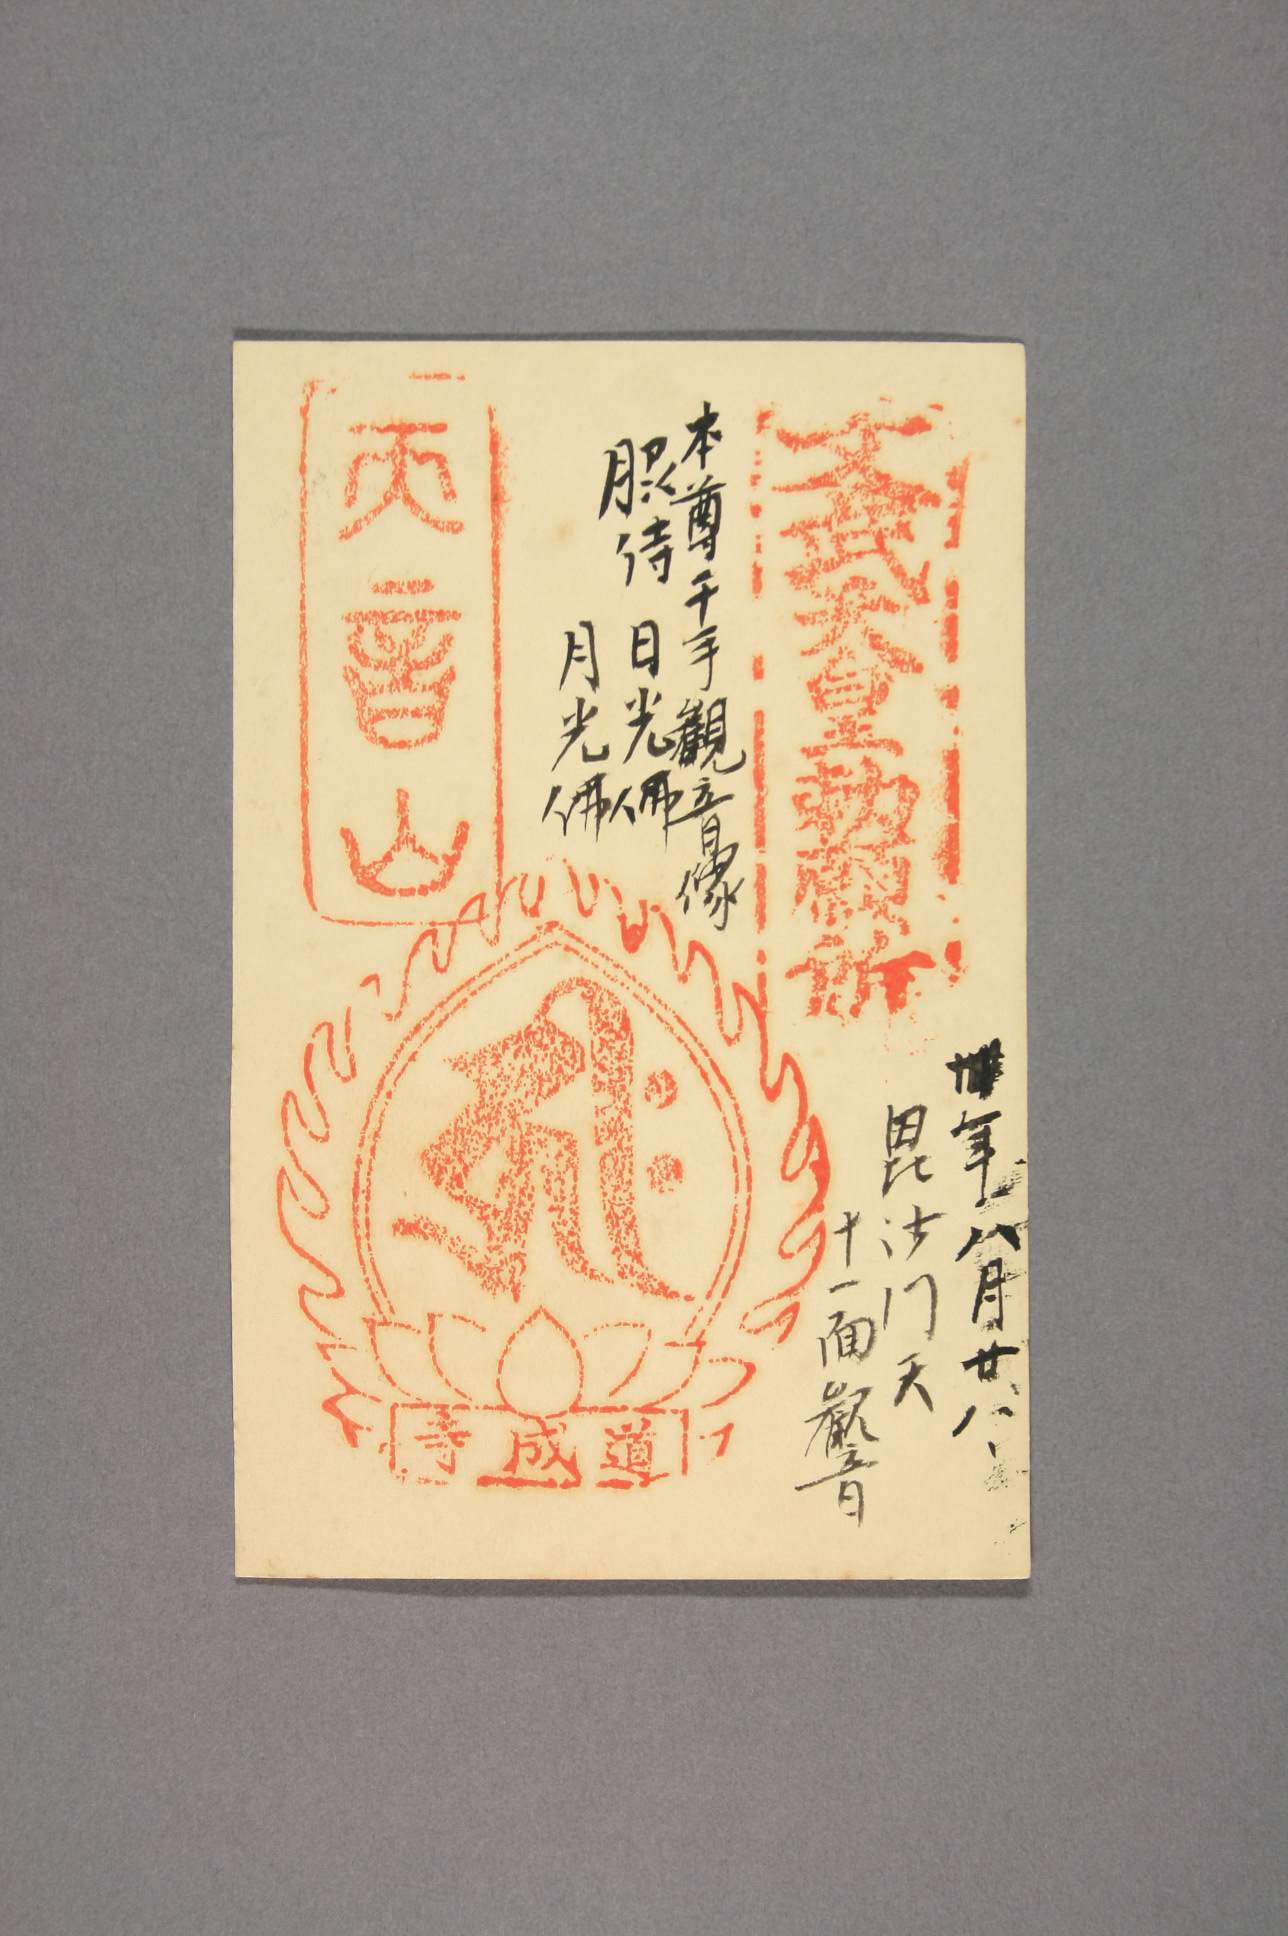 文武天皇勅願所
本尊千手觀音像
脇侍 日光佛
月光佛
天音山
年八月廿八
毘沙門天
十一面觀音
ह्रीः
道成寺